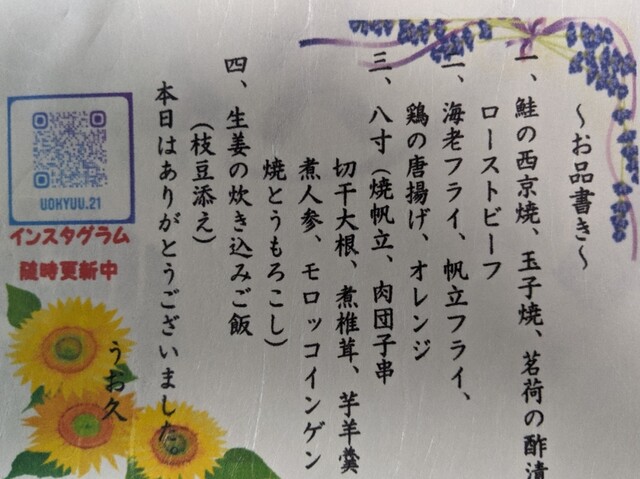 ～お品書き～
一、鮭の西京焼、玉子焼、茗荷の酢漬
ローストビーフ
二、海老フライ、帆立フライ、
鶏の唐揚げ、オレンジ
三、八寸（焼帆立、肉団子串
切干大根、煮椎茸、芋羊羹
煮人参、モロッコインゲン
焼とうもろこし）
四、生姜の炊き込みご飯
（枝豆添え）
本日はありがとうございました。
うお久
UOKYUU.21
インスタグラム
随時更新中